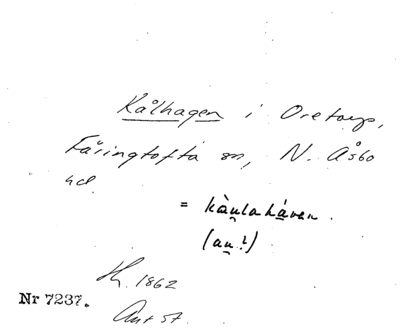 Kålhagen i Oretorp,
Färingtofta sn, N. Åsbo
hd.
= kàu̯lahávan.
(au̯?)
1862
Nr 7237.